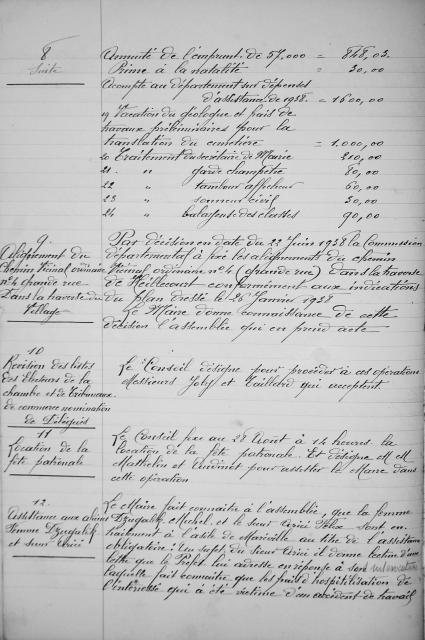 8
Suite
Annuité de l'emprunt de 57.000 = 848,03.
Prime à la natalité = 30,00
Acompte au département sur dépenses
d'assistance de 1938. = 1600,00
19 Vacation du Géologue et frais de
travaux préliminaires pour la
translation du cimetière = 1.000,00
20 Traitement du secrétaire de Mairie 210,00
21. " garde champêtre 80,00
22 " tambour afficheur 60,00
23 " sonneur civil 30,00
24 " balayage des classes 90,00
9.
Alignement du
chemin Vicinal ordinaire
n°4 grande rue
Dans la traverse du
Village
Par décision en date du 23 Juin 1938 la Commission
départemental à fixé les alignements du chemin
Vicinal ordinaire n°4 (grande rue) dans la traverse
de Heillecourt conformément aux indications
du plan dressé le 26 Janvier 1938
Le Maire donne connaissance de cette
décision l'assemblée qui en prend acte
10
Revision des listes
des Electeurs de la
chambre et de Tribunaux
de commerce nomination
de Délégués
Le Conseil désigne pour procéder à ces opérations
Messieurs Joly et Taillard qui acceptent.
11
Location de la
fête patronale
Le Conseil fixe au 28 Août à 14 heures la
location de la fête patronale. Et désigne M M
Mathelin et Audinot pour assister le Maire dans
cette opération
12.
Assistance aux
femme
et sieur
Le Maire fait connaitre à l'assemblée, que la femme
Michel et le sieur Félix sont en
traitement à l'asile de Maréville au titre de l'assistance
obligatoire. Au sujet du Sieur il donne lecture d'une
lettre que le Préfet lui adresse en réponse à son intervention
laquelle fait connaitre que les frais d'hospitilisation de
l'intéressé qui à été victime d'un accident de travail